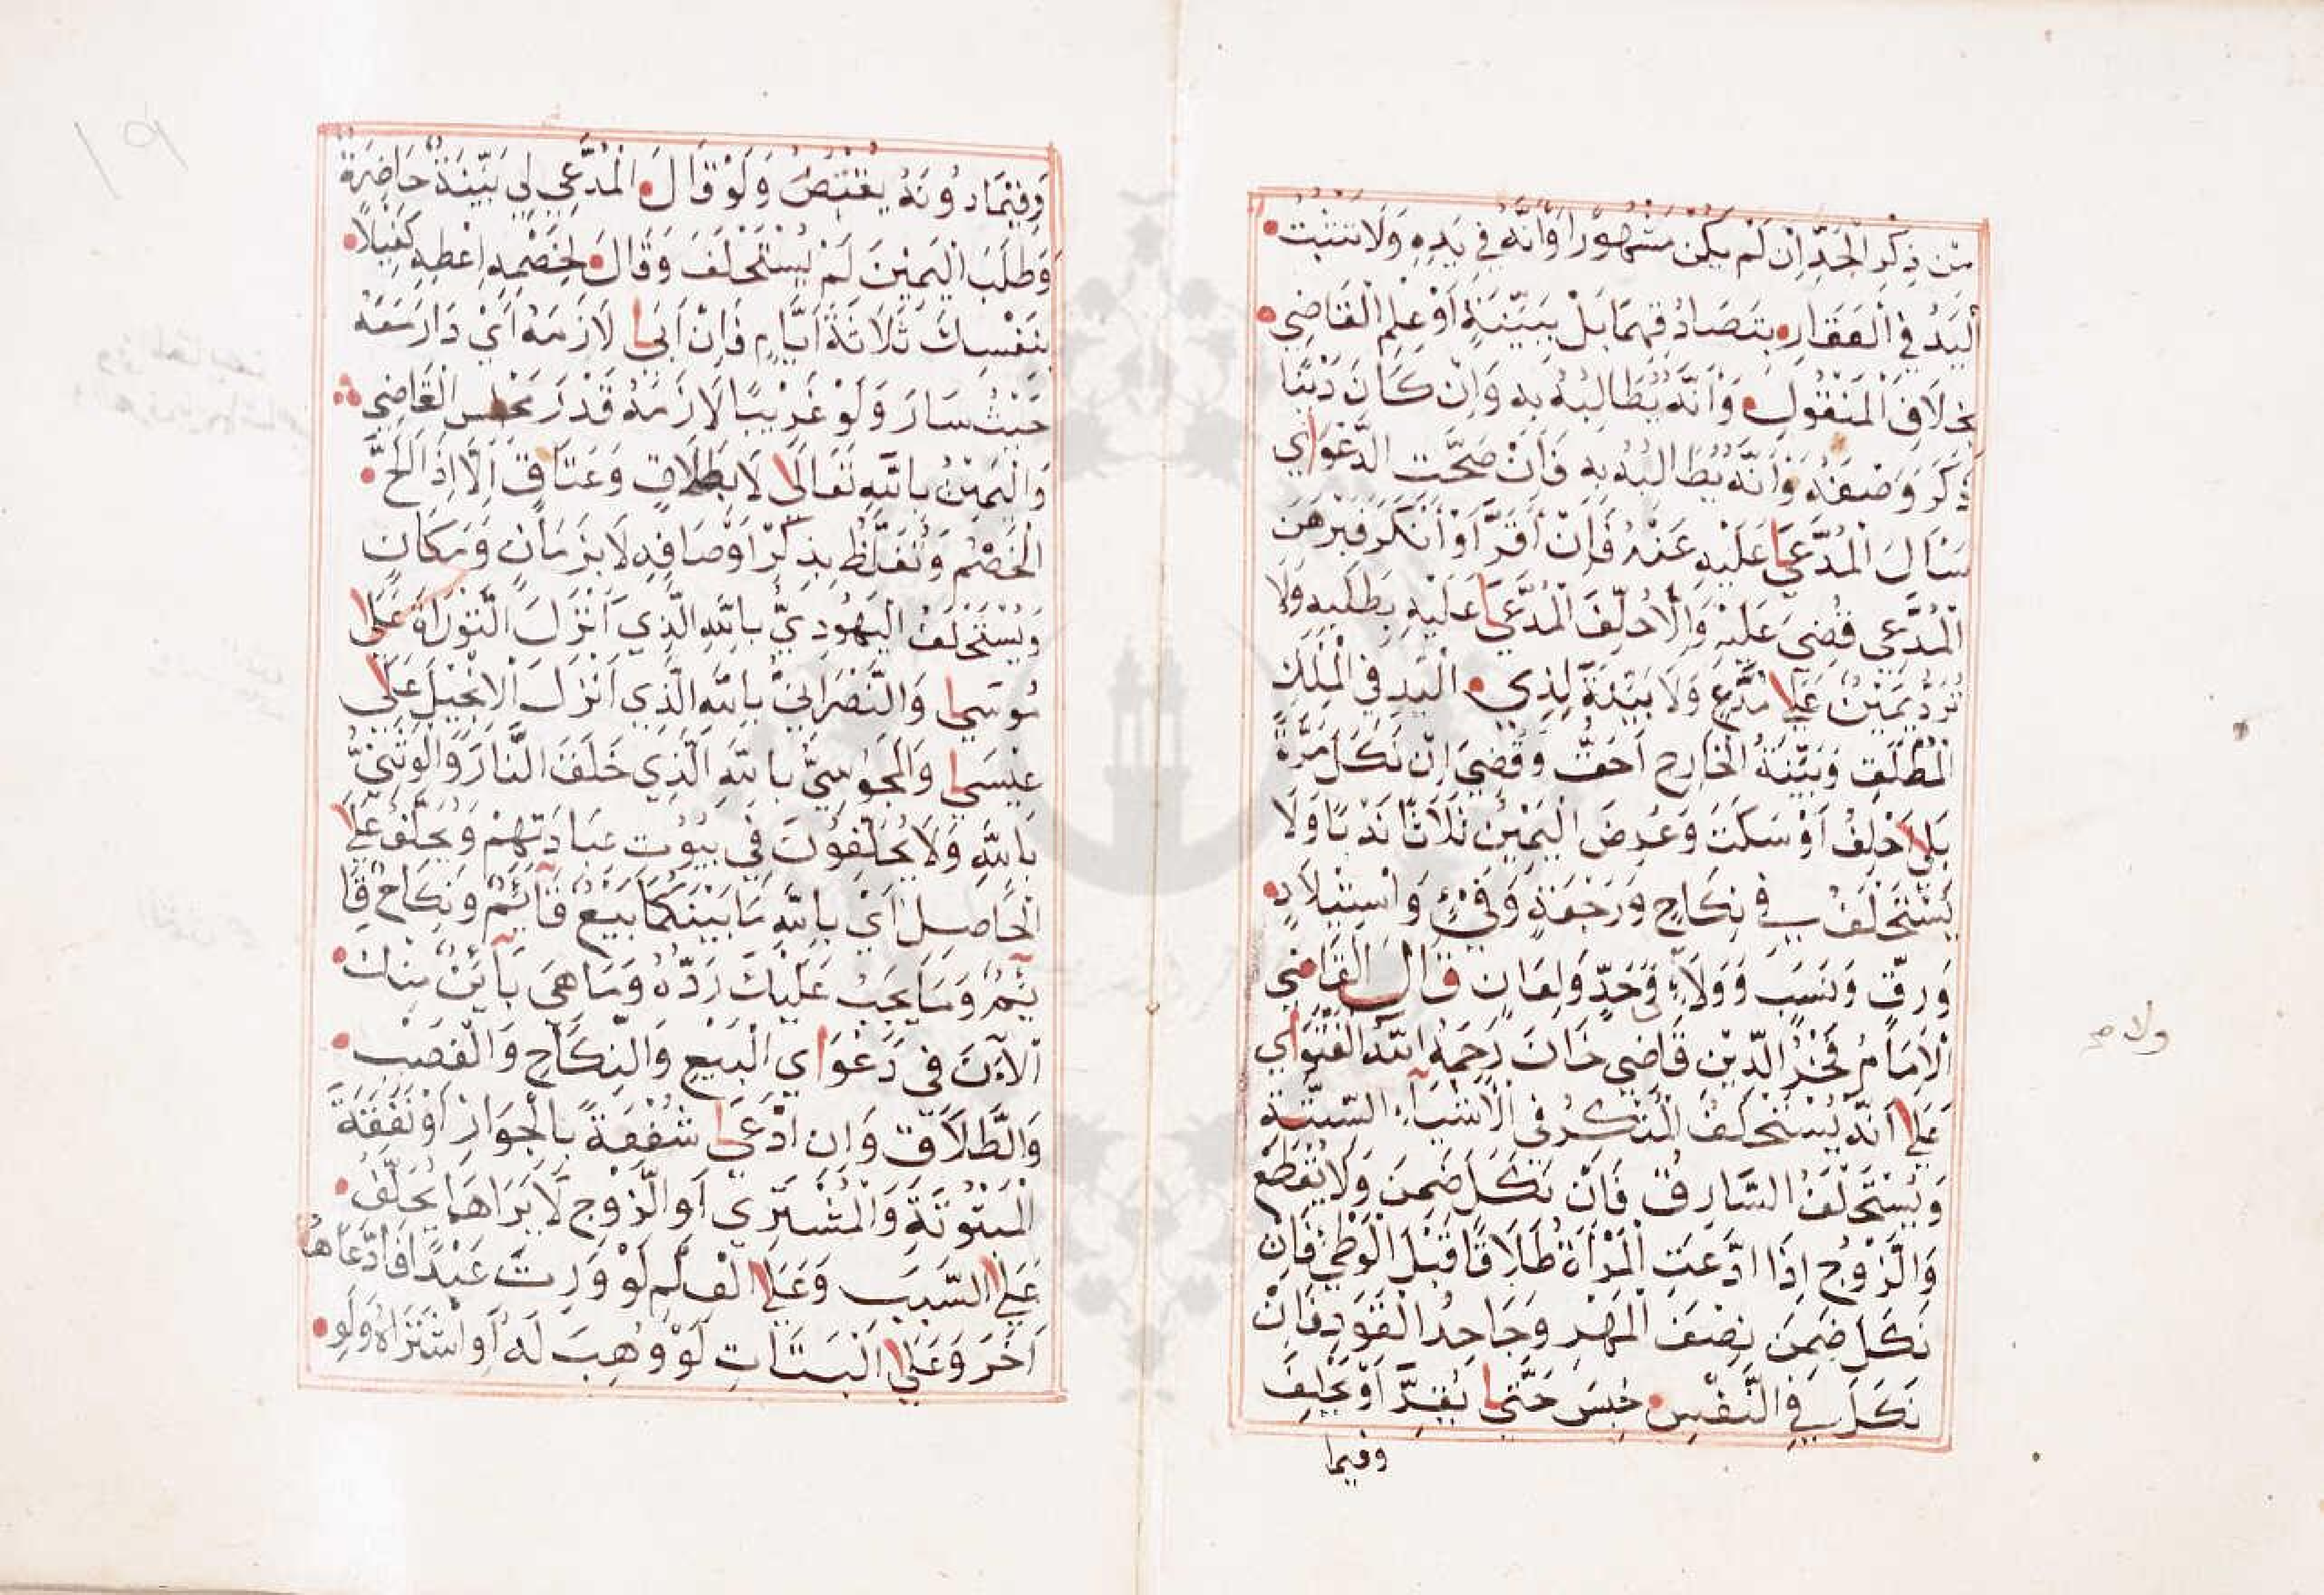 مِنْ ذِكْرِ الْجَدِّ اِنْ لَمْ يَكُنْ مَشْهُوْرًا وَاَنَّهُ فِي يَدِهِ وَلَا تَثْبُتُ
اَلْيَدُ فِي الْعَقَارِ بِتَصَادُقِهِمَا بَلْ بِبَيِّنَةٍ اَوْ عِلْمِ الْقَاضِي
بِخِلَافِ الْمَنْقُوْلِ وَاَنَّهُ يُطَالِبُهُ بِهِ وَاِنْ كَانَ دَيْنًا
ذَكَرَ وَصْفَهُ وَاَنَّهُ يُطَالِبُهُ بِهِ فَاِنْ صَحَّتِ الدَّعْوَاي
سَاَلَ الْمُدَّعَي عَلَيْهِ عَنْهُ فَاِنْ اَقَرَّ اَوْ اَنْكَرَ فَبَرْهَنَ
الْمُدَّعِي قُضِيَ عَلَيْهِ وَاِلَّا حُلِّفَ الْمُدَّعَي عَلَيْهِ بِطَلَبِهِ وَلَا
تُرَدُّ يَمِيْنٌ عَلَي مُدَّعٍ وَلَا بَيِّنَةَ لِذِي الْيَدِ فِي الْمِلْكِ
الْمُطْلَقِ وَبَيِّنَةُ الْخَارِجِ اَحَقُّ وَقُضِيَ اِنْ نَكَلَ مَرَّةً
بِلَا اَحْلِفُ اَوْ سَكَتَ وَعُرِضَ الْيَمِيْنُ ثَلَاثًا نَدْبًا وَلَا
يُسْتَحْلَفُ فِي نِكَاحٍ وَرَجْعَةٍ وَفَيْءٍ وَاسْتِيْلَادٍ
وَرِقٍّ وَنَسَبٍ وَوَلَاءٍ وَحَدٍّ وَلِعَانٍ قَالَ الْقَاضِي
الْاِمَامُ فَخْرُ الدِّيْنِ قَاضِي خَانَ رَحِمَهُ اللهُ الْفَتْوَاي
عَلَي اَنَّهُ يُسْتَحْلَفُ الْمُنْكِرُ فِي الْاَشْيَآءِ السِّتَّةِ
وَيُسْتَحْلَفُ السَّارِقُ فَاِنْ نَكَلَ ضَمِنَ وَلَا يُقْطَعُ
وَالزَّوْجُ اِذَا ادَّعَتِ الْمَرْاَةُ طَلَاقًا قَبْلَ الْوَطْيِ فَاِنْ
نَكَلَ ضَمِنَ نِصْفَ الْمَهْرِ وَجَاحِدُ الْقَوَدِ فَاِنْ
نَكَلَ فِي النَّفْسِ حُبِسَ حَتَّي يُقِرَّ اَوْ يَحْلِفَ
وفيما
ولاء
وَفِيْمَا دُوْنَهُ يُقْتَصُّ وَلَوْ قَالَ الْمُدَّعِي لِي بَيِّنَةٌ حَاضِرَةٌ
وَطَلَبَ الْيَمِيْنَ لَمْ يُسْتَحْلَفْ وَقَالَ لِخَصْمِهِ اَعْطِهِ كَفِيْلًا
بِنَفْسِكَ ثَلَاثَةَ اَيَّامٍ فَاِنْ اَبَي لَازَمَهُ اَيْ دَارَ مَعَهُ
حَيْثُ سَارَ وَلَوْ غَرِيْبًا لَازَمَهُ قَدْرَ مَجْلِسِ الْقَاضِي
وَالْيَمِيْنُ بِاللهِ تَعَالَي لَا بِطَلَاقٍ وَعَتَاقٍ اِلَّا اِذَا اَلَحَّ
الْخَصْمُ وَتُغَلَّظُ بِذِكْرِ اَوْصَافِهِ لَا بِزَمَانٍ وَمَكَانٍ
وَيُسْتَحْلَفُ الْيَهُوْدِيُّ بِاللهِ الَّذِي اَنْزَلَ التَّوْرَاةَ عَلَي
مُوْسَي وَالنَّصْرَانِيُّ بِاللهِ الَّذِي اَنْزَلَ الْاِنْجِيْلَ عَلَي
عِيْسَي وَالْمَجُوْسِيُّ بِاللهِ الَّذِي خَلَقَ النَّارَ وَالْوَثَنِيُّ
بِاللهِ وَلَا يُحَلَّفُوْنَ فِي بُيُوْتِ عِبَادَتِهِمْ وَيُحَلَّفُ عَلَي
الْحَاصِلِ اَيْ بِاللهِ مَا بَيْنَكُمَا بَيْعٌ قَآئِمٌ وَنِكَاحٌ قَا
ئِمٌ وَمَا يَجِبُ عَلَيْكَ رَدُّهُ وَمَا هِيَ بَآئِنٌ مِنْكَ
الْآنَ فِي دَعْوَاي الْبَيْعِ وَالنِّكَاحِ وَالْغَصْبِ
وَالطَّلَاقِ وَاِنِ ادَّعَي شُفْعَةً بِالْجِوَارِ اَوْ نَفَقَةَ
الْمَبْتُوْتَةِ وَالْمُشْتَرِي اَوِ الزَّوْجِ لَا يَرَاهَا يُحَلَّفُ
عَلَي السَّبَبِ وَعَلَي الْعِلْمِ لَوْ وَرِثَ عَبْدًا فَادَّعَاهُ
اَخَرَ وَعَلَي الْبَتَاتِ لَوْ وُهِبَ لَهُ اَوِ اشْتَرَاهُ وَلَوِ